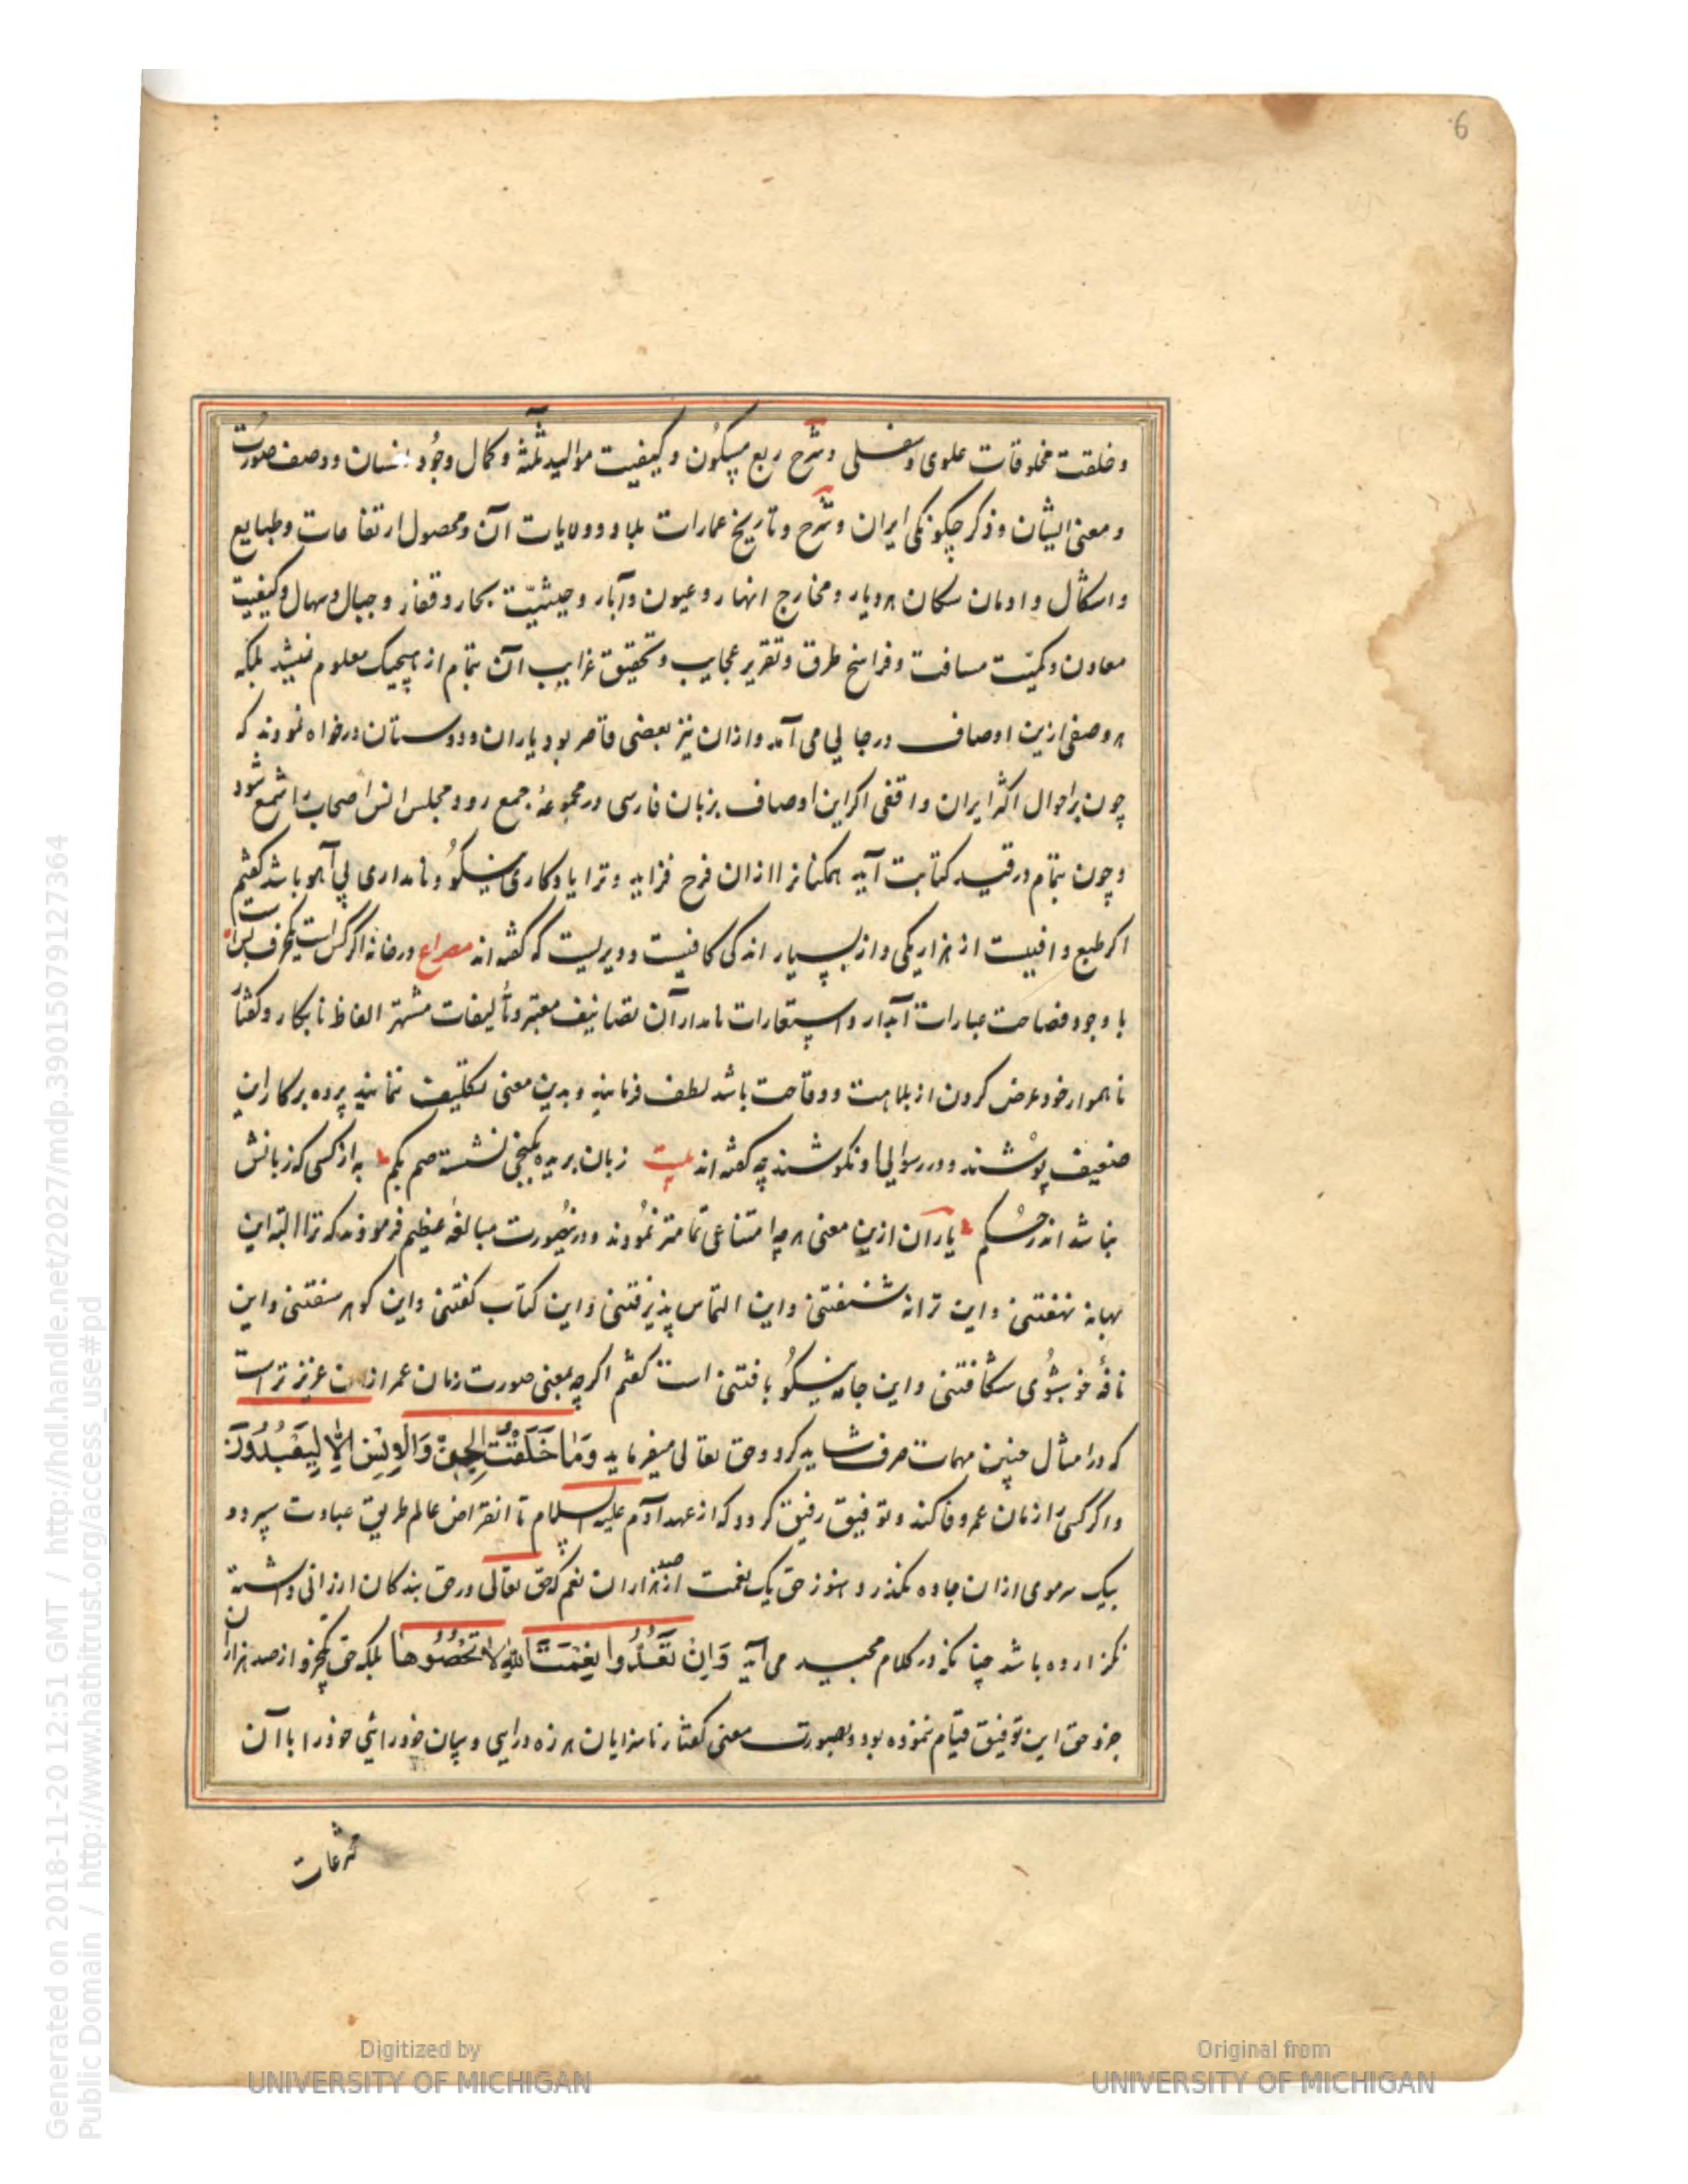 6
و خلقت مخلوقات علوی و سفلی و شرح ربع مسکون و کیفیت موالید ثلثه و کمال وجود انسان و وصف صورت
و معنی ایشان و ذکر چکونکی ایران و شرح و تاریخ عمارات بلاد و ولایات آن و محصول ارتفاعات و طبایع
و اشکال و ادیان سکان هر دیار و مخارج انهار و عیون و آبار و حیثیّت بحار و قفار و جبال و سهال و کیفیت
معادن و کمیّت مسافت و فراسخ طرق و تقریر عجایب و تحقیق غرایب آن بتمام از هیچیک معلوم نمیشد بلکه
هر وصفی ازین اوصاف در جایی می آمد و ازان نیز بعضی قاصر بود یاران و دوستان درخواه نمودند که
چون بر احوال اکثر ایران واقفی اکر این اوصاف بزبان فارسی در مجموعهٔ جمع رود مجلس انس اصحاب را شمع شود
و چون بتمام در قید کتابت آید همکنانرا ازان فرح فزاید و ترا یادکاری نیکو و نامداری بی آهو باشد کفتم
اکر طبع وافیست از هزار یکی و از بسیار اندکی کافیست و دیریست که کفته اند مصراع در خانه اکر کس است یکحرف بس است
با وجود فصاحت عبارات آبدار و استعارات نامدار آن تصانیف معتبر و تألیفات مشتهر الفاظ نابکار و کفتار
ناهموار خود عرض کردن از بلاهت و وقاحت باشد لطف فرمایند و بدین معنی تکلیف ننمایند پرده بر کار این
ضعیف پوشند و در رسوایی او نکوشند چه کفته اند بیت زبان بریده بکنجی نشسته صم بکم به از کسی که زبانش
نباشد اندر حکم یاران ازین معنی هر چه امتناعی تمامتر نمودند و درینصورت مبالغهٔ عظیم فرمودند که ترا البته این
بهانه نهفتنی و این ترانه شنفتنی و این التماس پذیرفتنی و این کتاب کفتنی و این کوهر سفتنی و این
نافهٔ خوشبوی شکافتنی و این جامه نیکو بافتنی است کفتم اکرچه بمعنی صورت زمان عمر ازان عزیزتر است
که در امثال چنین مهمات صرف شاید کرد و حق تعالی میفرماید وَمَا خَلَقْتُ الْجِنَّ وَالْإِنْسَ إِلَّا لِيَعْبُدُونَ
و اکر کسی را زمان عمر وفا کند و توفیق رفیق کردد که از عهد آدم علیه السلام تا انقراض عالم طریق عبادت سپرد و
بیک سر موی ازان جاده نکذرد هنوز حق یک نعمت از صد هزاران نعم که حق تعالی در حق بندکان ارزانی داشته
نکزارده باشد چنانکه در کلام مجید می آید وَإِنْ تَعُدُّوا نِعْمَتَ اللَّهِ لَا تُحْصُوهَا بلکه حق یکجزو از صد هزاران
جزو حق این توفیق قیام ننموده بود و بصورت معنی کفتار ناسزایان هرزه درایی و بیان خودرائی خود را با آن